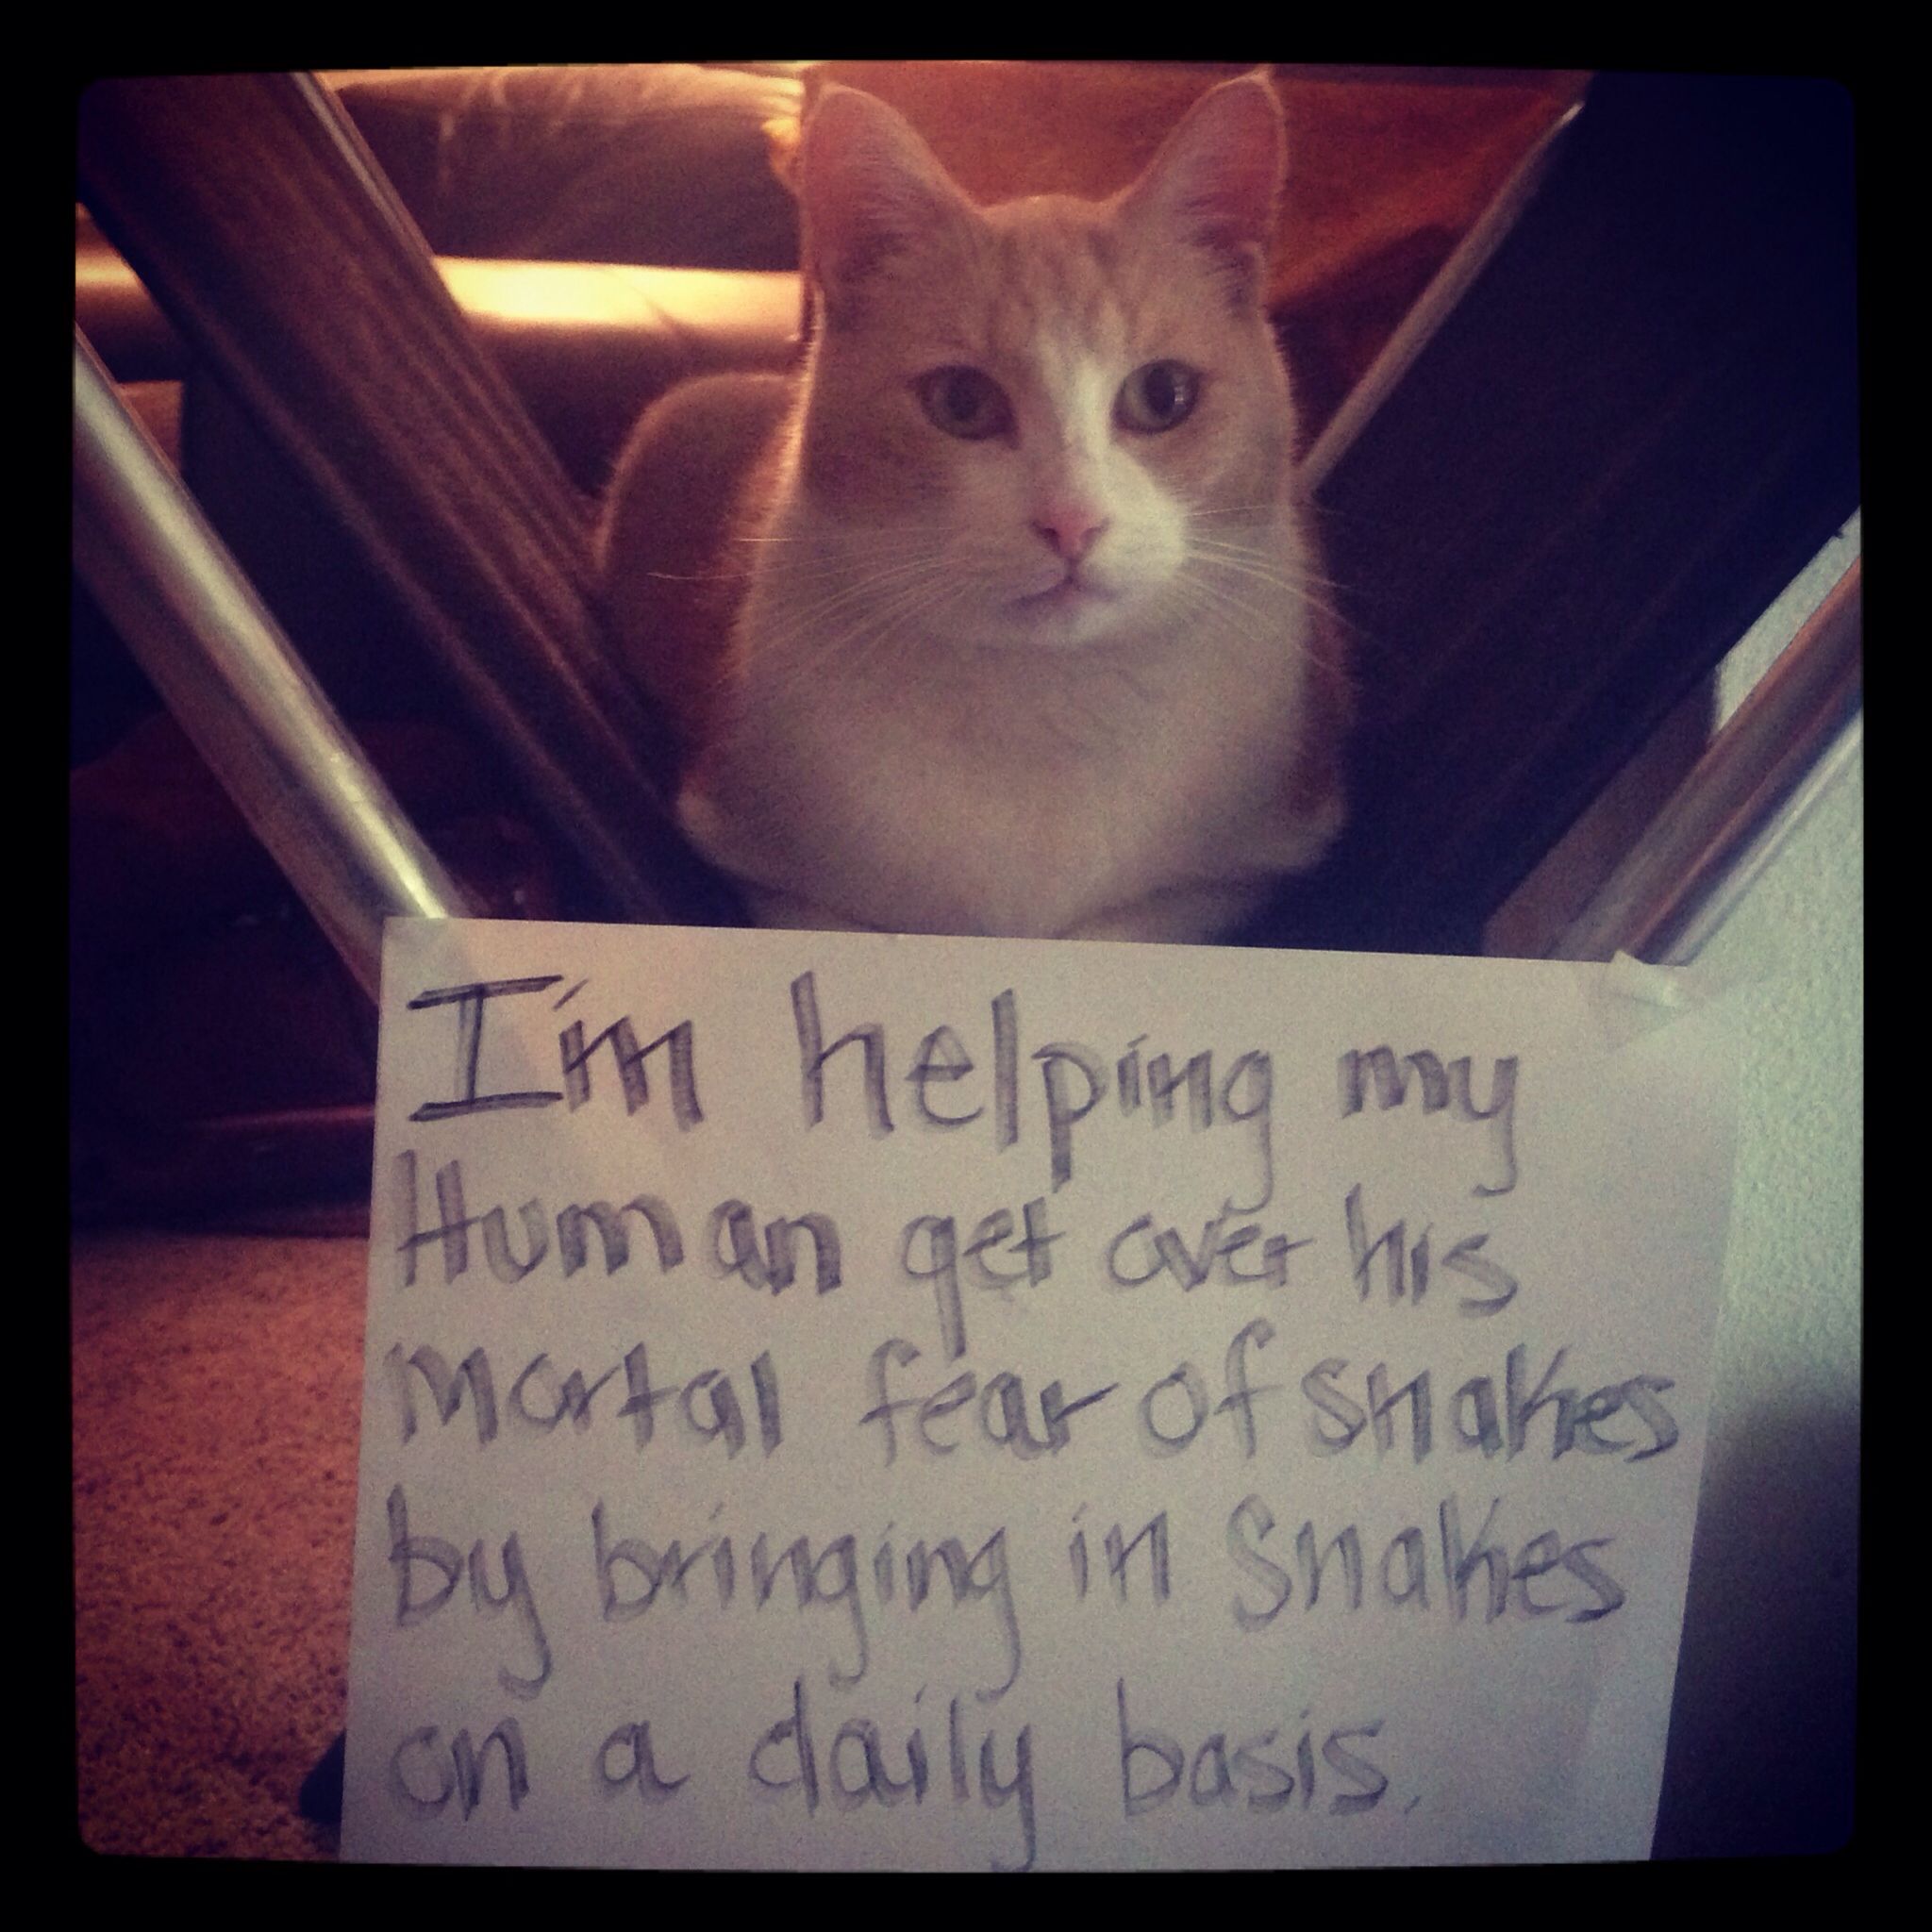 I'm helping my
Human get over his
Mortal fear of snakes
by bringing in Snakes
on a daily basis.